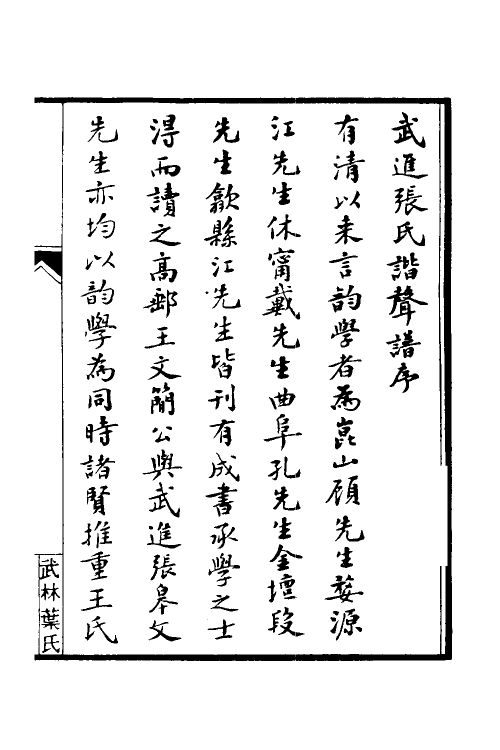 武進張氏諧聲譜序
有清以来言韵學者為崑山顧先生婺源
江先生休甯戴先生曲阜孔先生金壇段
先生歙縣江先生皆刊有成書承學之士
得而讀之高郵王文簡公與武進張皋文
先生亦均以韵學為同時諸賢推重王氏
武林葉氏